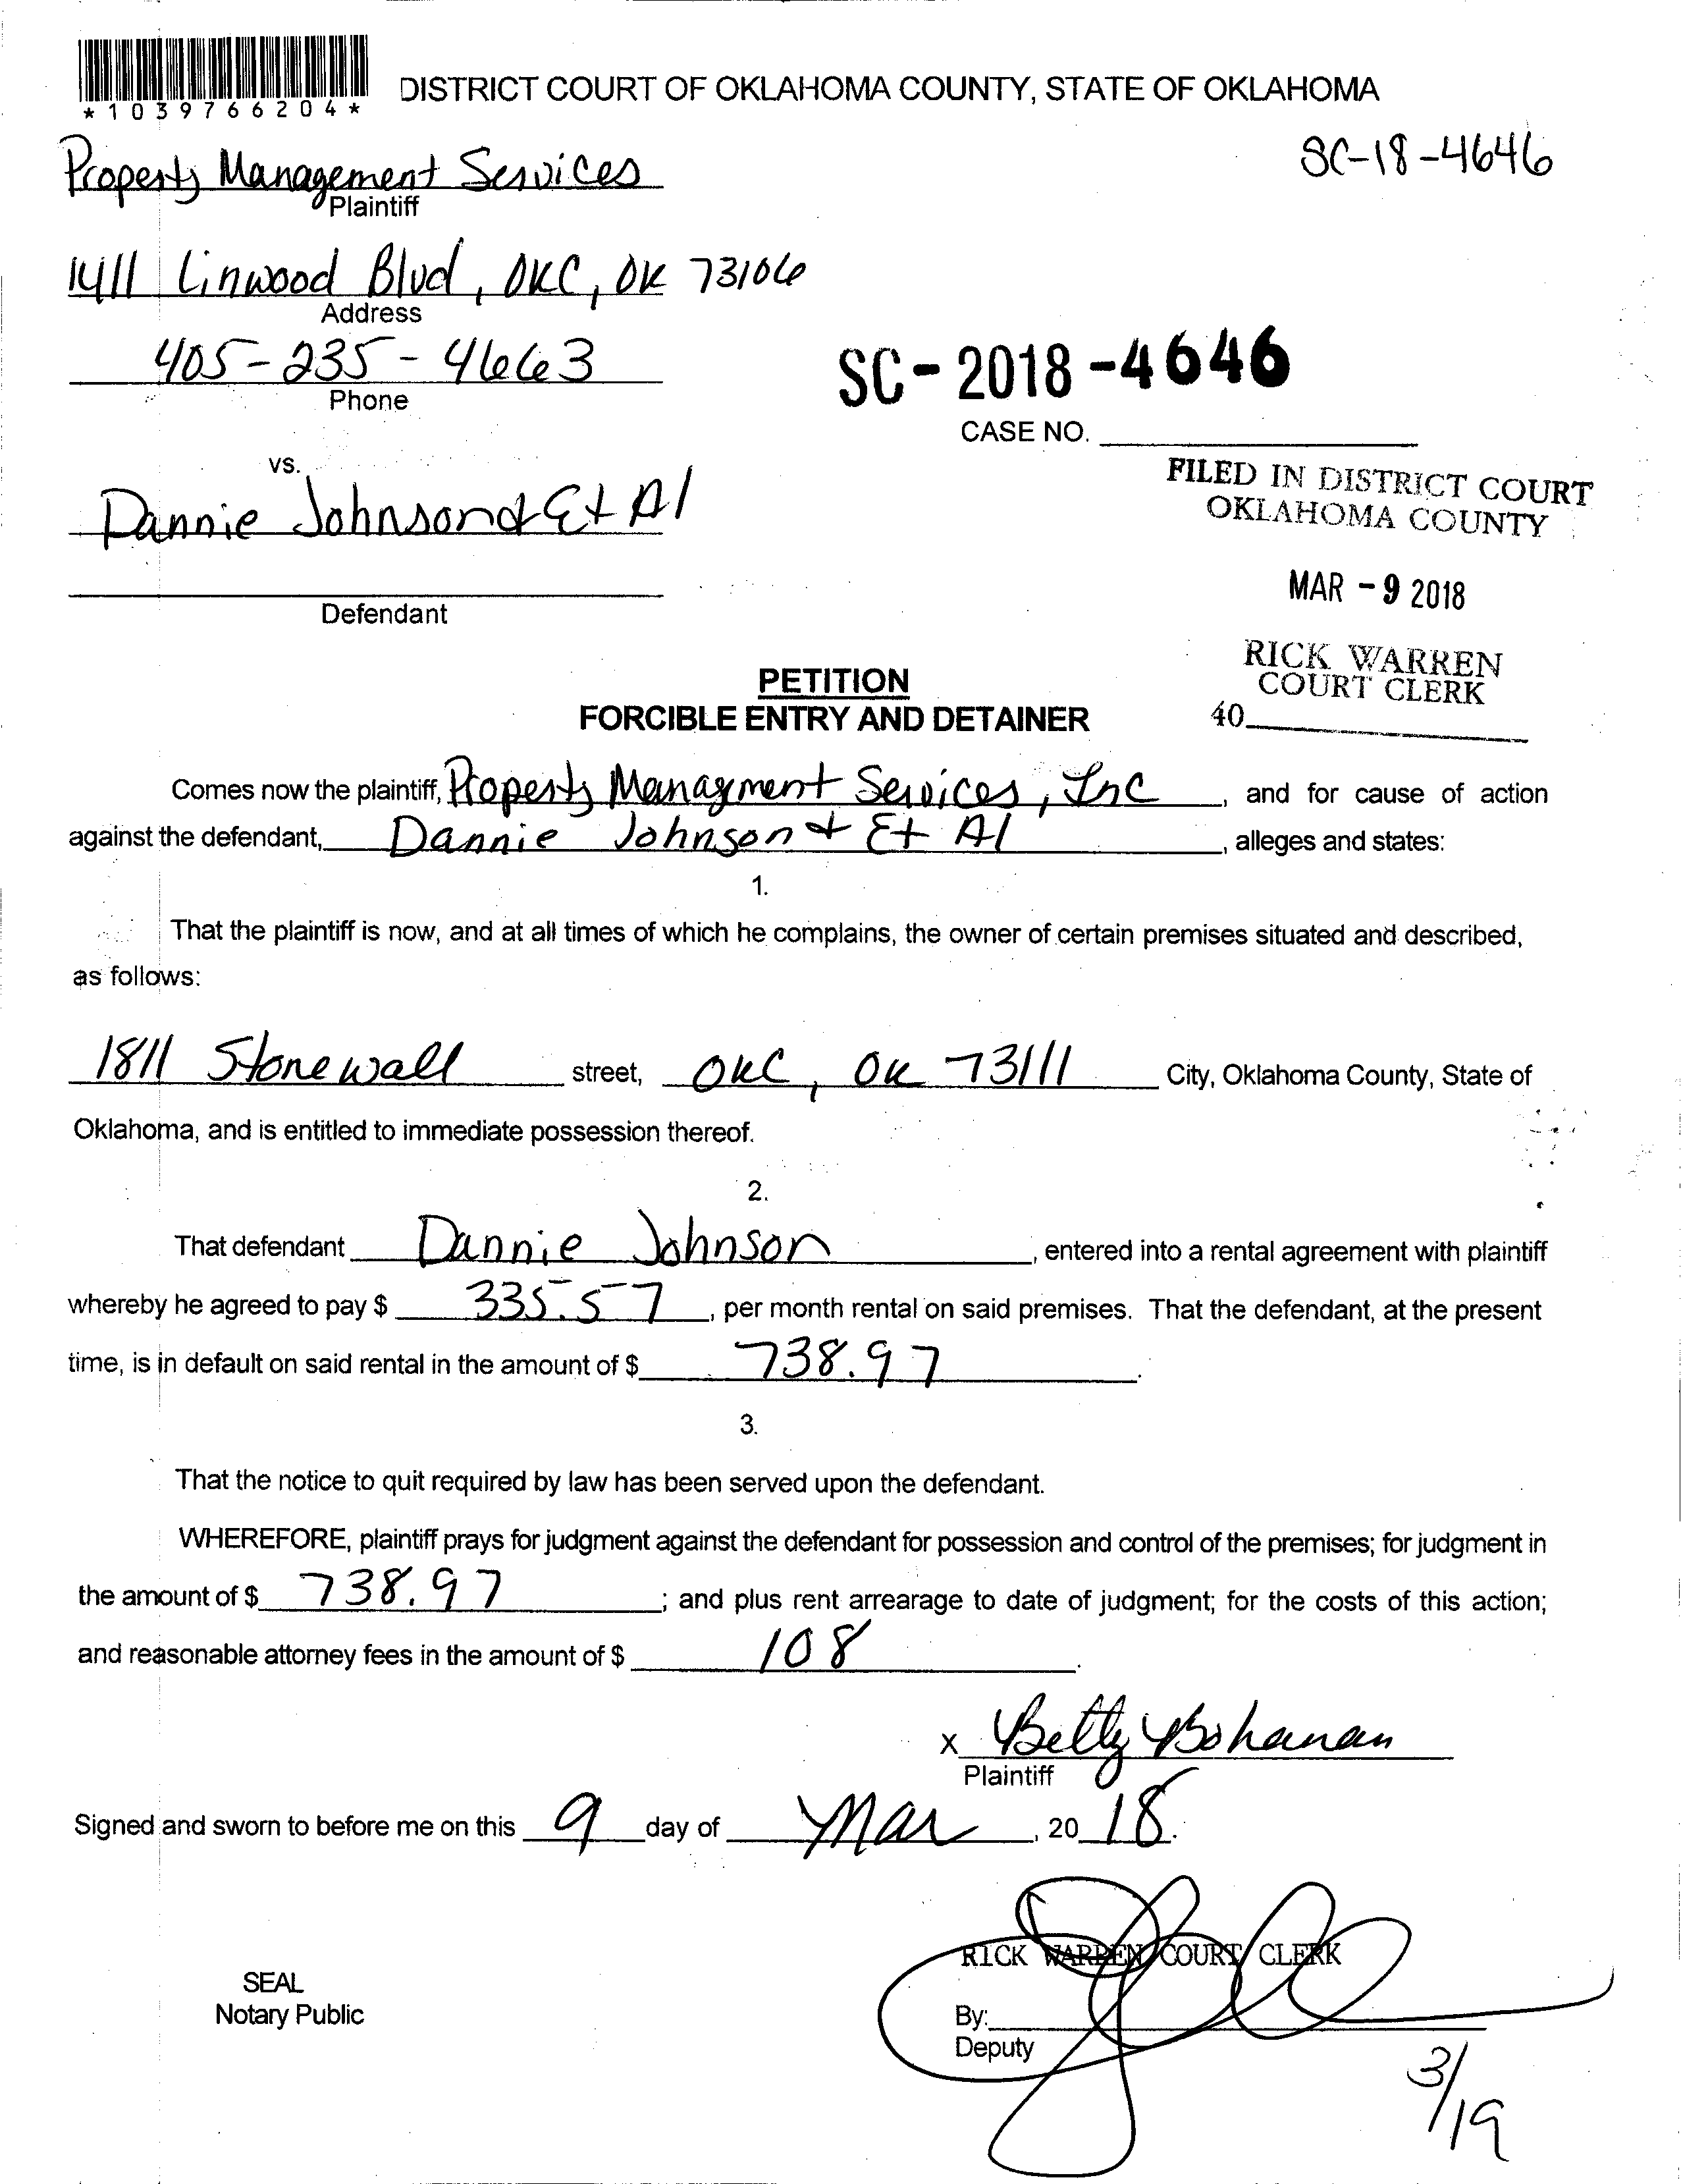 *1039766204*
DISTRICT COURT OF OKLAHOMA COUNTY, STATE OF OKLAHOMA
SC-18-4646
Property Management Services
Plaintiff
1411 Linwood Blvd, OKC, OK 73106
Address
405-235-4663
Phone
SC-2018-4646
CASE NO.
vs.
FILED IN DISTRICT COURT
OKLAHOMA COUNTY
Dannie Johnson & Et Al
MAR -9 2018
Defendant
RICK WARREN
COURT CLERK
40
PETITION
FORCIBLE ENTRY AND DETAINER
Comes now the plaintiff, Property Managment Services, Inc, and for cause of action
against the defendant, Dannie Johnson & Et Al, alleges and states:
1.
That the plaintiff is now, and at all times of which he complains, the owner of certain premises situated and described,
as follows:
1811 Stonewall street, OKC, OK 73111 City, Oklahoma County, State of
Oklahoma, and is entitled to immediate possession thereof.
2.
That defendant Dannie Johnson, entered into a rental agreement with plaintiff
whereby he agreed to pay $ 335.57, per month rental on said premises. That the defendant, at the present
time, is in default on said rental in the amount of $ 738.97.
3.
That the notice to quit required by law has been served upon the defendant.
WHEREFORE, plaintiff prays for judgment against the defendant for possession and control of the premises; for judgment in
the amount of $ 738.97; and plus rent arrearage to date of judgment; for the costs of this action;
and reasonable attorney fees in the amount of $ 108.
X Betty Bohanan
Plaintiff
Signed and sworn to before me on this 9 day of Mar, 20 18.
RICK WARREN COURT CLERK
SEAL
Notary Public
By:
Deputy
3/19